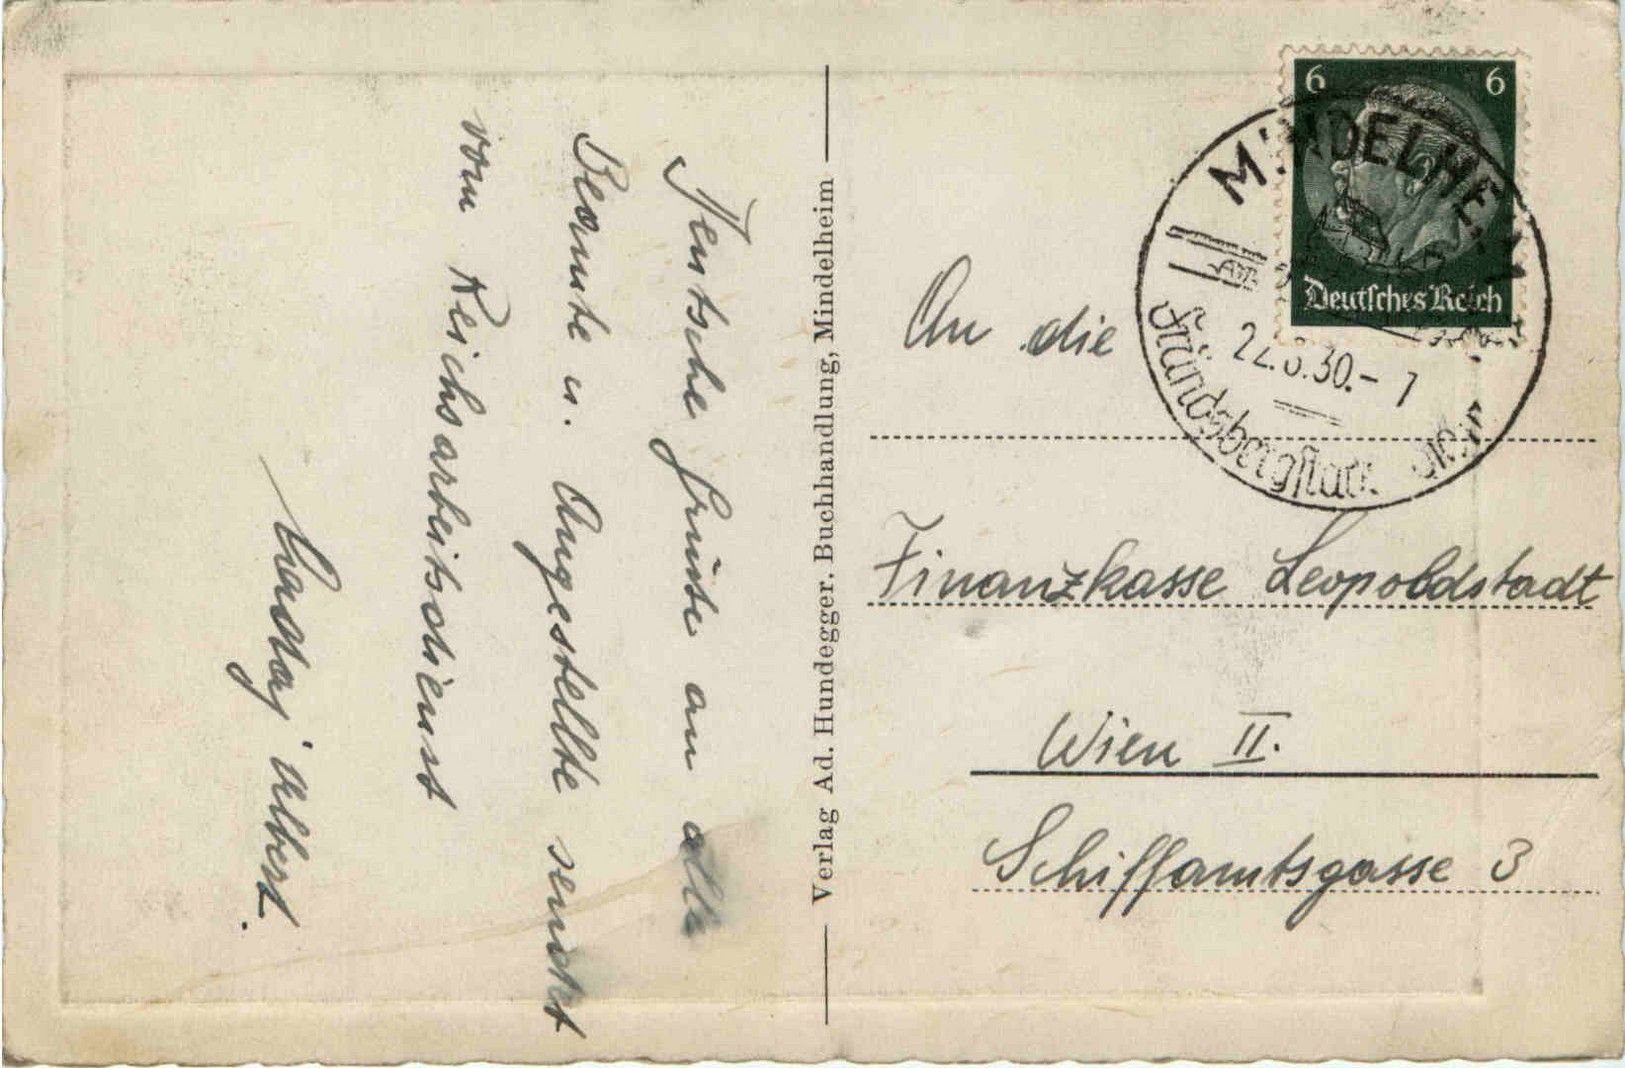 Deutsche Grüsse an alle
Beamte u. Angestellte sendet
vom Reichsarbeitsdienst
Albert.
Verlag Ad. Hundegger. Buchhandlung, Mindelheim
6 6
Deutsches Reich
MINDELHEIM
An die
Finanzkasse Leopoldstadt
Wien II.
Schiffamtsgasse 3